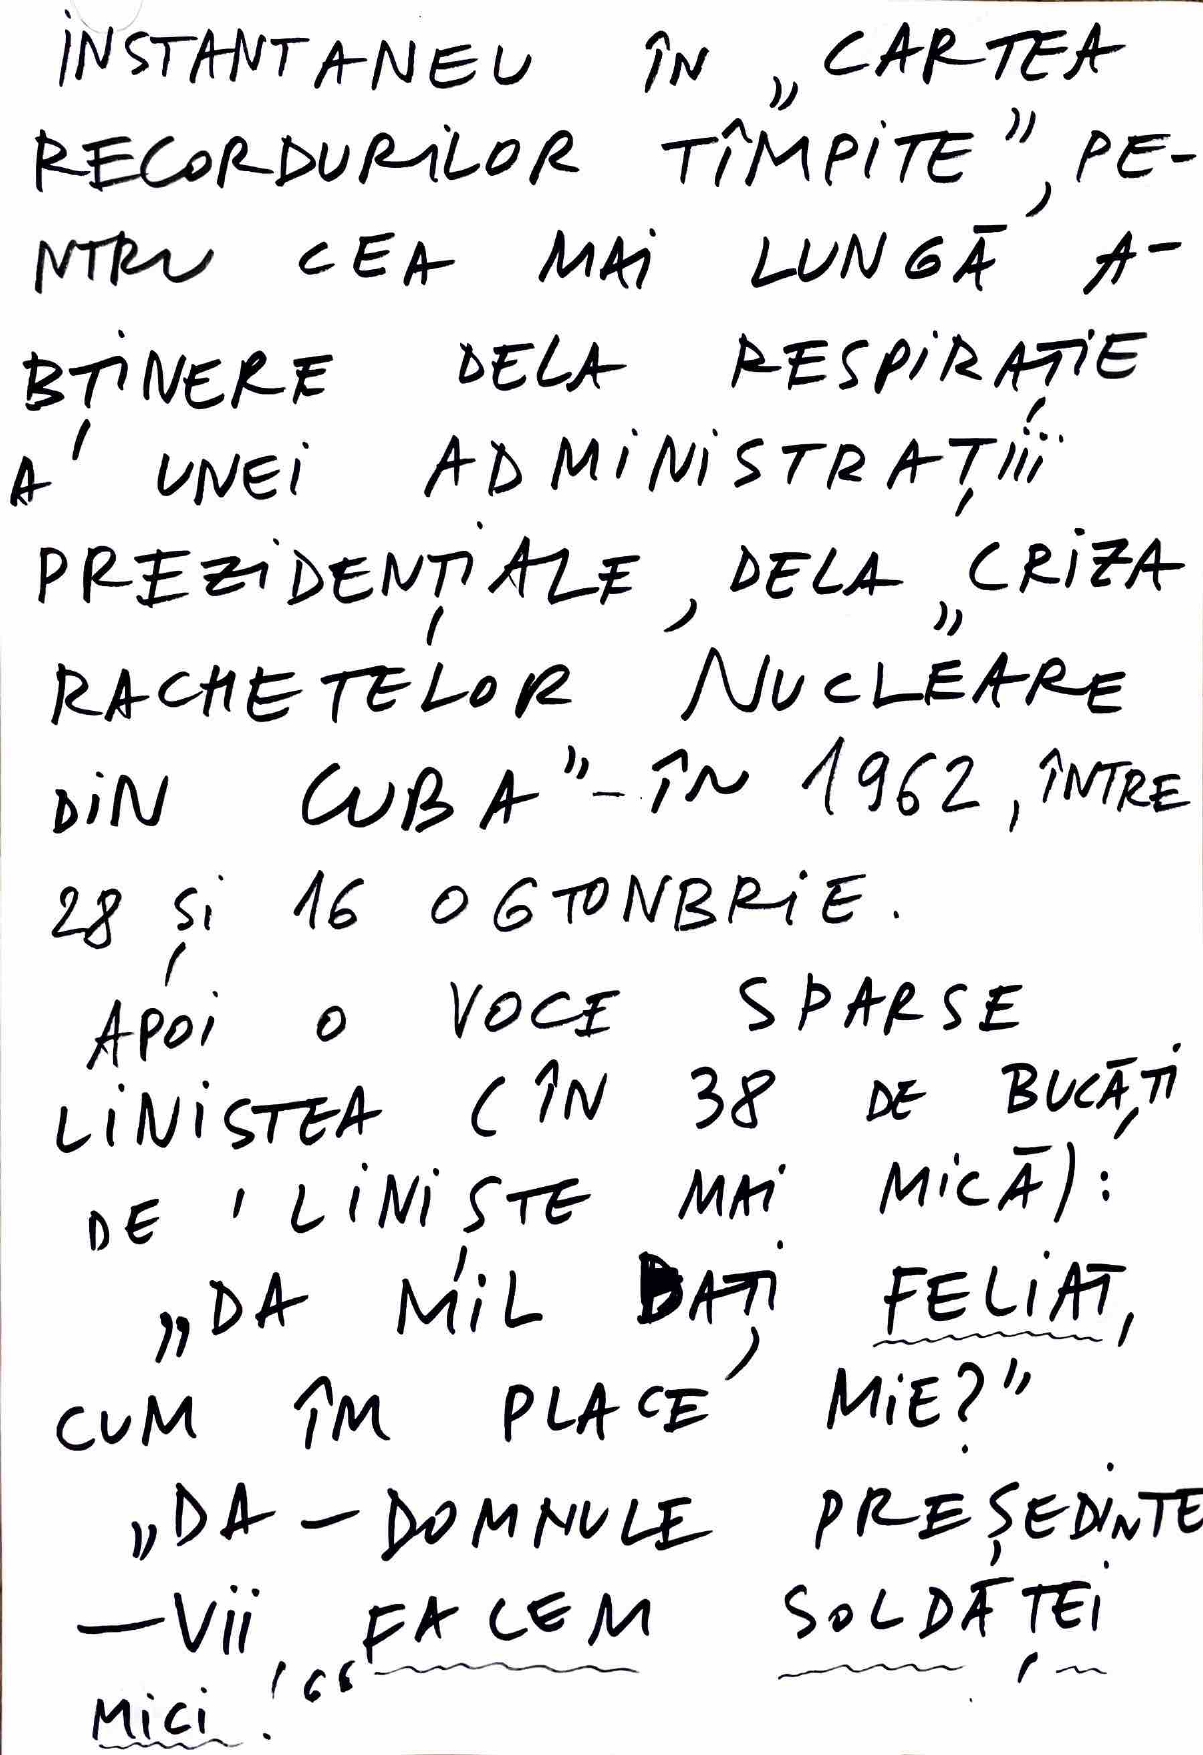 INSTANTANEU ÎN „CARTEA
RECORDURILOR TÎMPITE”, PE-
NTRU CEA MAI LUNGĂ A-
BȚINERE DELA RESPIRAȚIE
A UNEI ADMINISTRAȚIII
PREZIDENȚIALE, DELA „CRIZA
RACHETELOR NUCLEARE
DIN CUBA” – ÎN 1962, ÎNTRE
28 ȘI 16 OGTONBRIE.
APOI O VOCE SPARSE
LINISTEA (ÎN 38 DE BUCĂȚI
DE LINIȘTE MAI MICĂ):
„DA MIL DAȚI FELIAT,
CUM ÎM PLACE MIE?”
„DA – DOMNULE PREȘEDINTE
– VII FACEM SOLDĂȚEI
MICI!“